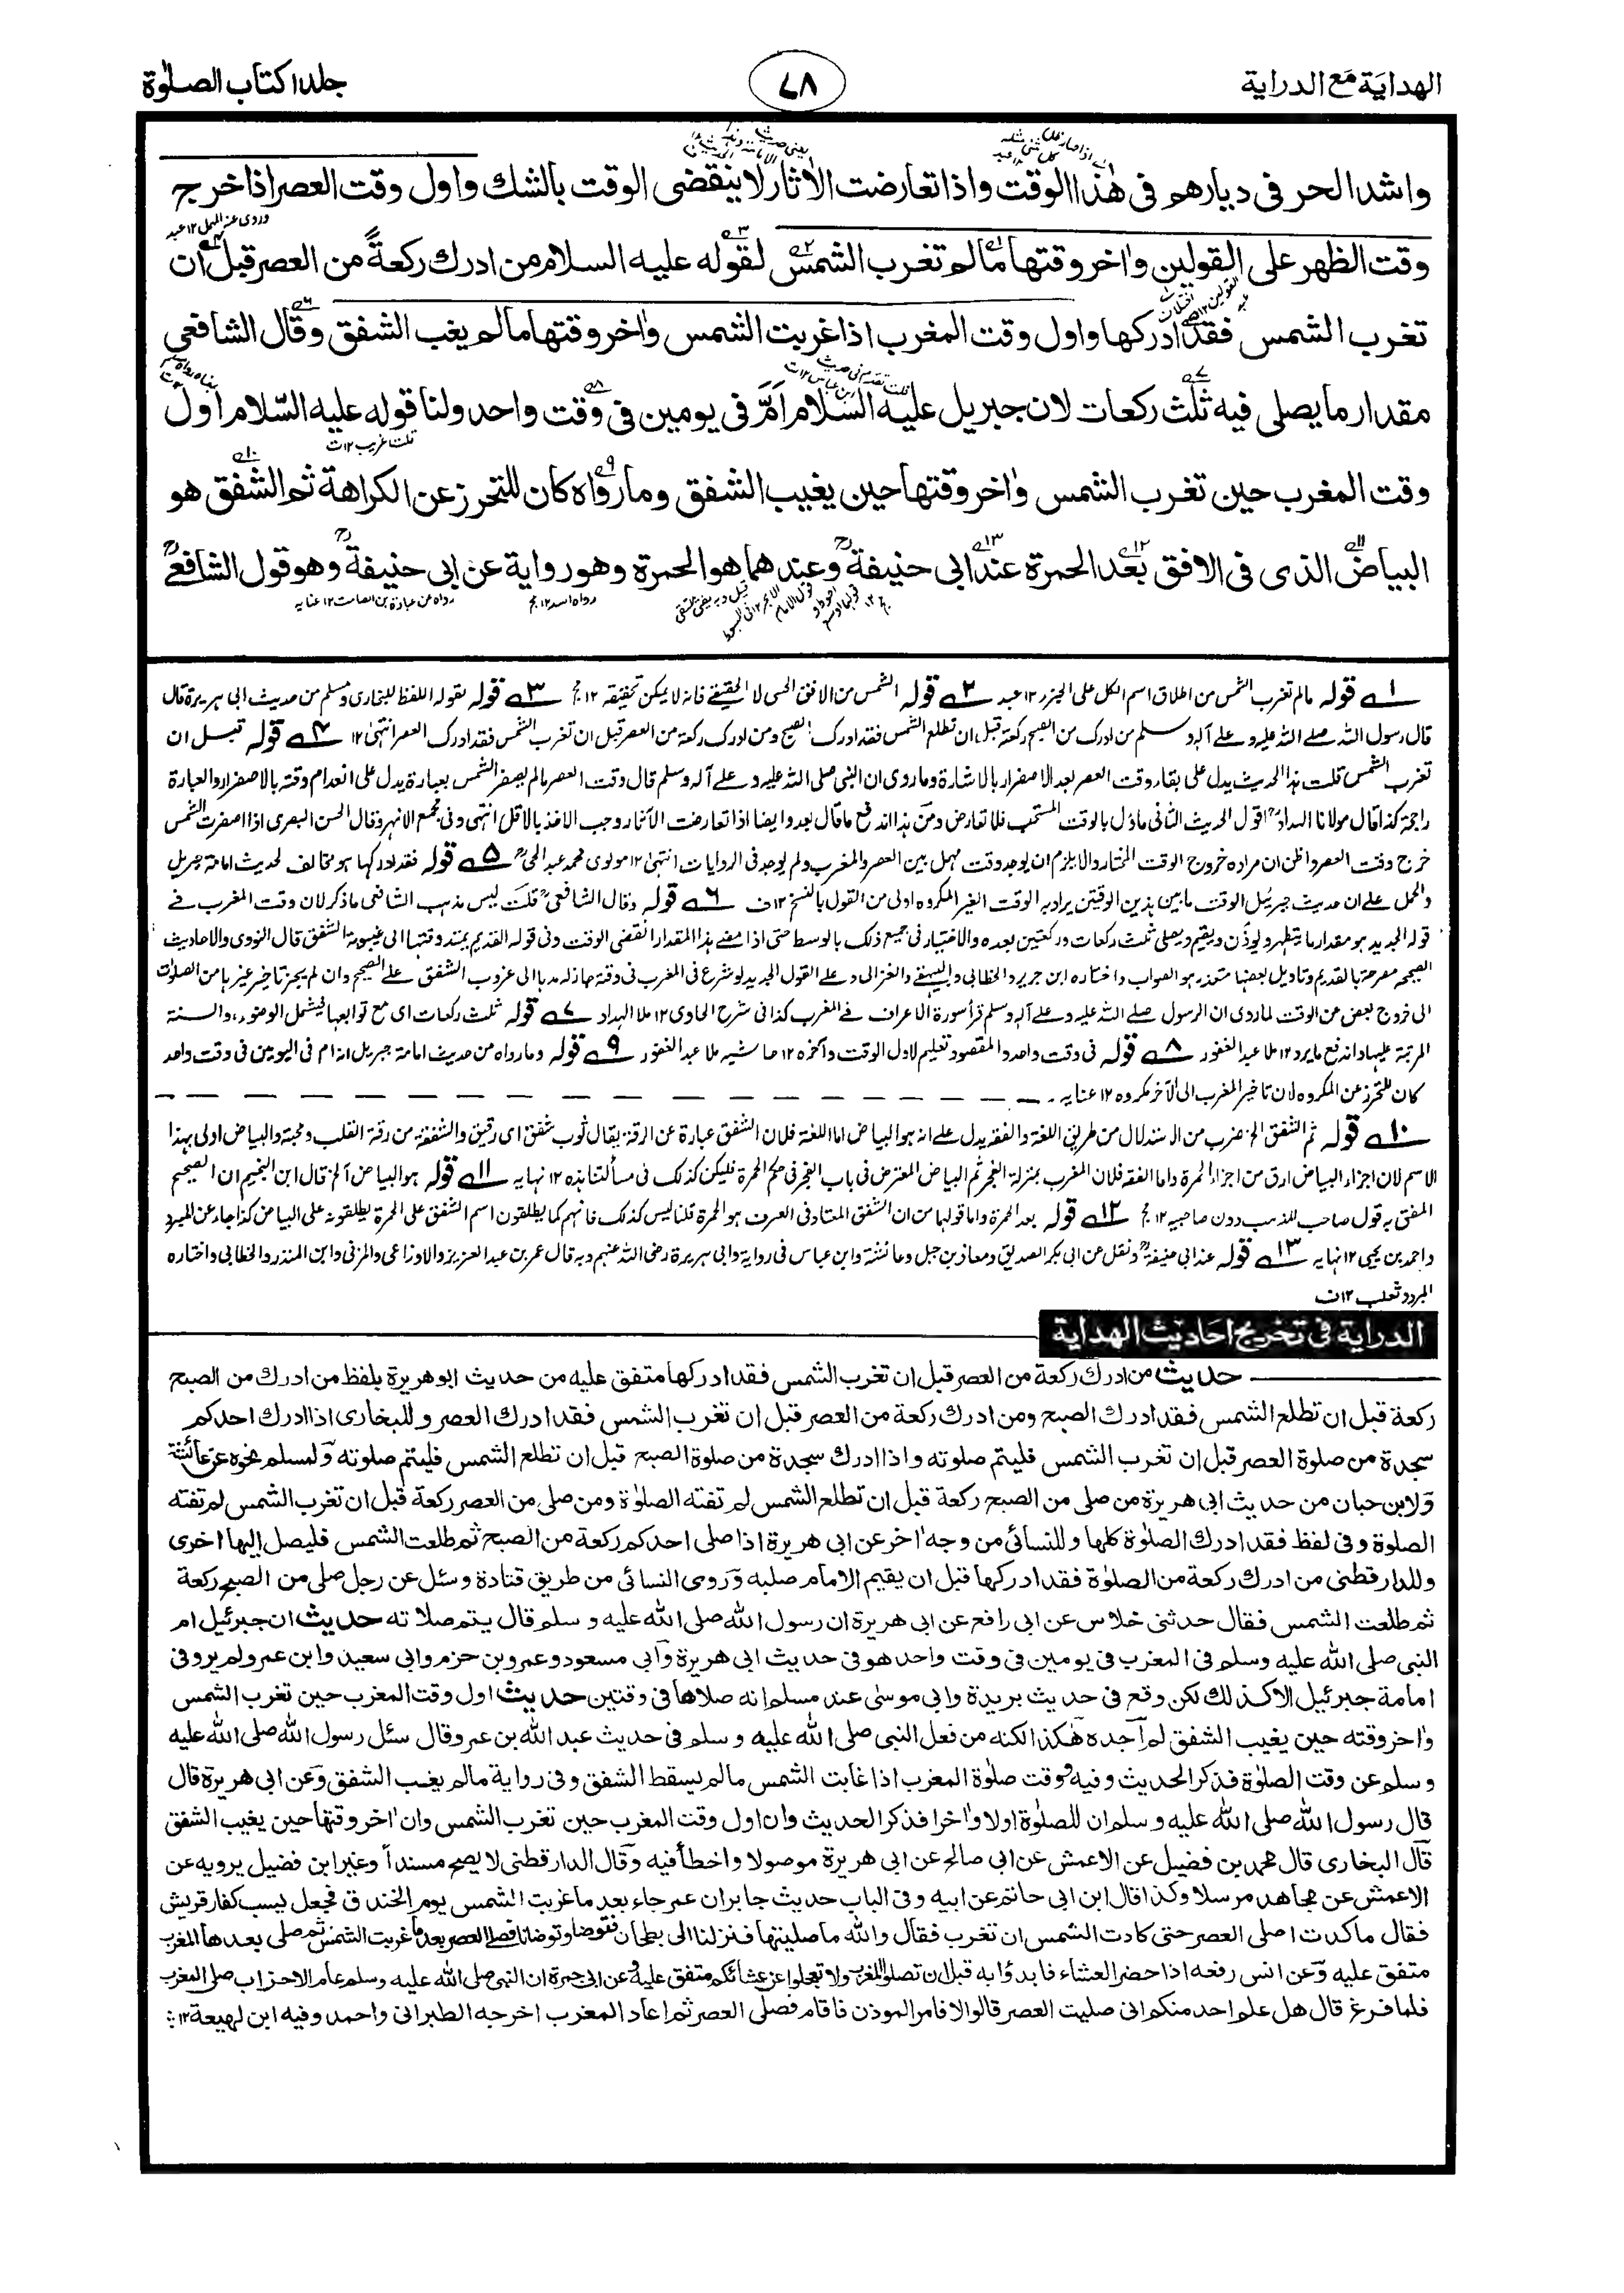 الهداية مع الدراية
٧٨
جلد ١ كتاب الصلوٰة
واشد الحر فى ديارهم فى هٰذا الوقت واذا تعارضت الاٰثار لا ينقضى الوقت بالشك واول وقت العصر اذا خرج
وقت الظهر على القولين واٰخر وقتها مالم تغرب الشمس لقوله عليه السلام من ادرك ركعةً من العصر قبل ان
تغرب الشمس فقد ادركها واول وقت المغرب اذا غربت الشمس واٰخر وقتها مالم يغب الشفق وقال الشافعى
مقدار ما يصلى فيه ثلٰث ركعات لان جبريل عليه السلام اَمَّ فى يومين فى وقت واحد ولنا قوله عليه السّلام اول
وقت المغرب حين تغرب الشمس واٰخر وقتها حين يغيب الشفق وما رواه كان للتحرز عن الكراهة ثم الشفق هو
البياض الذى فى الافق بعد الحمرة عند ابى حنيفة رح وعندهما هو الحمرة وهو رواية عن ابى حنيفة رح وهو قول الشافعى رح
١ قوله مالم تغرب الشمس من اطلاق اسم الكل على الجزء ١٢ عبد ٢ قوله الشمس من الافق الحسى لا الحقيقى فانه لا يمكن تحقيقه ١٢ مج ٣ قوله لقوله اللفظ للبخارى ومسلم من حديث ابى هريرة قال
قال رسول الله صلى الله عليه وعلى آله وسلم من ادرك من الصبح ركعة قبل ان تطلع الشمس فقد ادرك الصبح ومن ادرك ركعة من العصر قبل ان تغرب الشمس فقد ادرك العصر انتهىٰ ١٢ ٤ قوله قبل ان
تغرب الشمس قلت هذا الحديث يدل على بقاء وقت العصر بعد الاصفرار بالاشارة وما روى ان النبى صلى الله عليه وعلى آله وسلم قال وقت العصر مالم يصفر الشمس بعبارة يدل على انعدام وقته بالاصفرار والعبارة
راجحة كذا قال مولانا الهداد رح اقول الحديث الثانى ماؤل بالوقت المستحب فلا تعارض ومن هذا اندفع ما قال بعد وايضا اذا تعارضت الآثار وجب الاخذ بالاقل انتهى وفى مجمع الانهر وقال الحسن البصرى اذا اصفرت الشمس
خرج وقت العصر واظن ان مراده خروج الوقت المختار والا يلزم ان يوجد وقت مهمل بين العصر والمغرب ولم يوجد فى الروايات انتهىٰ ١٢ مولوى محمد عبد الحى رح ٥ قوله فقد ادركها هو مخالف لحديث امامة جبريل
والحمل على ان حديث جبرئيل الوقت ما بين هذين الوقتين يراد به الوقت الغير المكروه اولى من القول بالنسخ ١٢ ف ٦ قوله وقال الشافعى رح قلت ليس مذهب الشافعى ما ذكر لان وقت المغرب فى
قوله الجديد هو مقدار ما يتطهر ويؤذن ويقيم ويصلى ثلث ركعات وركعتين بعده والاختيار فى جميع ذلك بالوسط حتى اذا مضى هذا المقدار انقضى الوقت وفى قوله القديم يمتد وقتها الى غيبوبة الشفق قال النووى والاحاديث
الصحيحة مصرحة بالقديم وتاويل بعضها متعذر هو الصواب واختاره ابن جرير والخطابى والبيهقى والغزالى وعلى القول الجديد لو شرع فى المغرب فى وقته جاز له مدها الى غروب الشفق على الصحيح وان لم يجز تاخير غيرها من الصلوات
الى خروج بعض من الوقت لما روى ان الرسول صلى الله عليه وعلى آله وسلم قرأ سورة الاعراف فى المغرب كذا فى شرح الحاوى ١٢ ملا الهداد ٧ قوله ثلث ركعات اى مع توابعها فيشمل الوضوء، والسنة
المرتبة عليها واندفع ما يرد ١٢ ملا عبد الغفور ٨ قوله فى وقت واحد والمقصود تعليم لاول الوقت وآخره ١٢ حاشيه ملا عبد الغفور ٩ قوله وما رواه من حديث امامة جبريل انه ام فى اليومين فى وقت واحد
كان للتحرز عن المكروه لان تاخير المغرب الى الآخر مكروه ١٢ عنايه -
١٠ قوله ثم الشفق الخ ضرب من الاستدلال من طريق اللغة والفقه يدل على انه هو البياض اما اللغة فلان الشفق عبارة عن الرقة يقال ثوب شفق اى رقيق والشفقة من رقة القلب ومحبة والبياض اولى بهذا
الاسم لان اجزاء البياض ارق من اجزاء الحمرة واما الفقه فلان المغرب بمنزلة الفجر ثم البياض المعترض فى باب الفجر فى حكم الحمرة فليكن كذلك فى مسألتنا هذه ١٢ نهايه ١١ قوله هو البياض آلخ قال ابن النجيم ان الصحيح
المفتى به قول صاحب المذهب دون صاحبيه ١٢ مج ١٢ قوله بعد الحمرة واما قولهما من ان الشفق المعتاد فى العرف هو الحمرة قلنا ليس كذلك فانهم كما يطلقون اسم الشفق على الحمرة يطلقونه على البياض كذا جاء عن المبرد
واحمد بن يحيى ١٢ نهايه ١٣ قوله عند ابى حنيفة رح ونقل عن ابى بكر الصديق ومعاذ بن جبل وعائشة وابن عباس فى رواية وابى هريرة رضى الله عنهم وبه قال عمر بن عبد العزيز والاوزاعى والمزنى وابن المنذر والخطابى واختاره
المبرد وثعلب ١٢ ت
الدراية فى تخريج احاديث الهداية
حديث من ادرك ركعة من العصر قبل ان تغرب الشمس فقد ادركها متفق عليه من حديث ابو هريرة بلفظ من ادرك من الصبح
ركعة قبل ان تطلع الشمس فقد ادرك الصبح ومن ادرك ركعة من العصر قبل ان تغرب الشمس فقد ادرك العصر وللبخارى اذا ادرك احدكم
سجدة من صلوة العصر قبل ان تغرب الشمس فليتم صلوته واذا ادرك سجدة من صلوة الصبح قبل ان تطلع الشمس فليتم صلوته ولمسلم نحوه عن عائشة
ولابن حبان من حديث ابى هريرة من صلى من الصبح ركعة قبل ان تطلع الشمس لم تفته الصلوٰة ومن صلى من العصر ركعة قبل ان تغرب الشمس لم تفته
الصلوة وفى لفظ فقد ادرك الصلوٰة كلها وللنسائى من وجه اٰخر عن ابى هريرة اذا صلى احدكم ركعة من الصبح ثم طلعت الشمس فليصل إليها اخرى
وللدارقطنى من ادرك ركعة من الصلوٰة فقد ادركها قبل ان يقيم الامام صلبه وروى النسائى من طريق قتادة وسئل عن رجل صلى من الصبح ركعة
ثم طلعت الشمس فقال حدثنى خلاس عن ابى رافع عن ابى هريرة ان رسول الله صلى الله عليه وسلم قال يتم صلاته حديث ان جبرئيل ام
النبى صلى الله عليه وسلم فى المغرب فى يومين فى وقت واحد هو فى حديث ابى هريرة وأبى مسعود وعمرو بن حزم وابى سعيد وابن عمر ولم يرو فى
امامة جبرئيل الا كذلك لكن وقع فى حديث بريدة وابى موسىٰ عند مسلم انه صلاها فى وقتين حديث اول وقت المغرب حين تغرب الشمس
واٰخر وقته حين يغيب الشفق لم أجده هٰكذا لكنه من فعل النبى صلى الله عليه وسلم فى حديث عبد الله بن عمرو قال سئل رسول الله صلى الله عليه
وسلم عن وقت الصلوٰة فذكر الحديث وفيه ووقت صلوٰة المغرب اذا غابت الشمس مالم يسقط الشفق وفى رواية مالم يغب الشفق وعن ابى هريرة قال
قال رسول الله صلى الله عليه وسلم ان للصلوٰة اولا واٰخرا فذكر الحديث وان اول وقت المغرب حين تغرب الشمس وان اٰخر وقتها حين يغيب الشفق
قال البخارى قال محمد بن فضيل عن الاعمش عن ابى صالح عن ابى هريرة موصولا واخطأ فيه وقال الدارقطنى لا يصح مسنداً وغير ابن فضيل يرويه عن
الاعمش عن مجاهد مرسلا وكذا قال ابن ابى حاتم عن ابيه وفى الباب حديث جابر ان عمر جاء بعد ما غربت الشمس يوم الخندق فجعل يسب كفار قريش
فقال ما كدت اصلى العصر حتى كادت الشمس ان تغرب فقال والله ما صليتها فنزلنا الى بطحان فتوضا وتوضأنا فصلى العصر بعد ما غربت الشمس ثم صلى بعدها المغرب
متفق عليه وعن انس رفعه اذا حضر العشاء فابدؤا به قبل ان تصلوا المغرب ولا تعجلوا عن عشائكم متفق عليه وعن ابى جمرة ان النبى صلى الله عليه وسلم عام الاحزاب صلى المغرب
فلما فرغ قال هل علم احد منكم انى صليت العصر قالوا لا فامر الموذن فاقام فصلى العصر ثم اعاد المغرب اخرجه الطبرانى واحمد وفيه ابن لهيعة ١٢ ؛